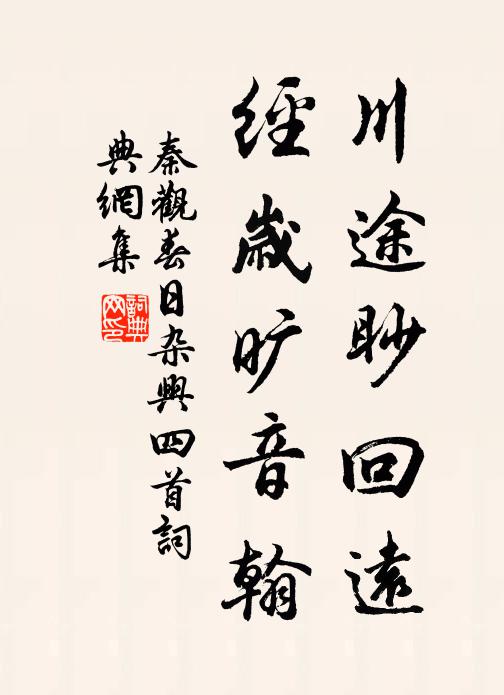 川途眇回遠
經歲曠音翰
秦觀春日杂興四首詞
典網集
詞典
网印